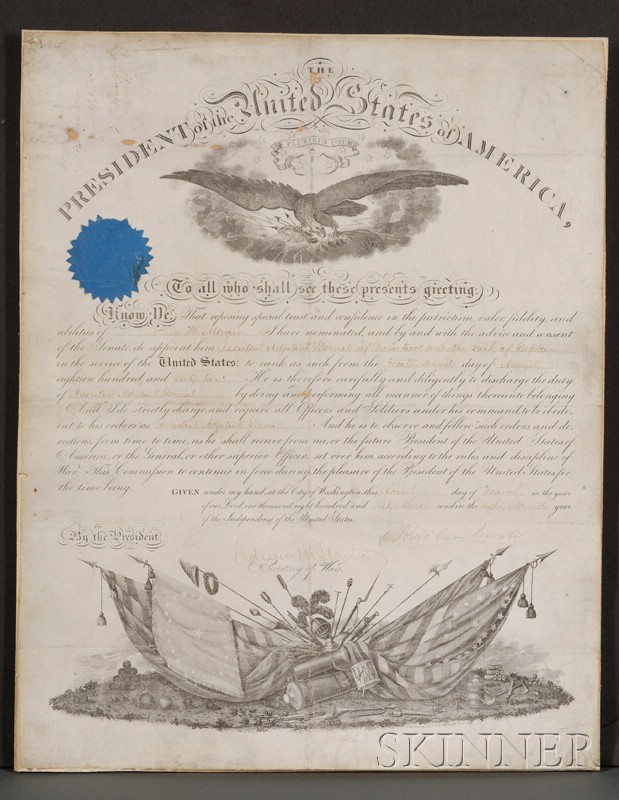 THE
PRESIDENT of the United States of AMERICA,
E PLURIBUS UNUM
To all who shall see these presents greeting:
Know Ye, That reposing special trust and confidence in the patriotism, valor, fidelity, and
abilities of I have nominated, and by and with the advice and consent
of the Senate, do appoint him Assistant Adjutant General of Volunteers with the rank of Captain
in the service of the United States: to rank as such from the day of August
eighteen hundred and He is therefore carefully and diligently to discharge the duty
of Assistant Adjutant General by doing and performing all manner of things thereunto belonging.
And I do strictly charge, and require all Officers and Soldiers under his command to be obedi-
ent to his orders as Assistant Adjutant General And he is to observe and follow such orders, and di-
rections, from time to time, as he shall receive from me, or the future President of the United States of
America, or the General, or other superior Officers set over him, according to the rules and discipline of
War. This Commission to continue in force during the pleasure of the President of the United States for
the time being.
GIVEN under my hand, at the City of Washington, this day of in the year
of our Lord, one thousand eight hundred and and in the year
of the Independence of the United States.
By the President,
Abraham Lincoln
Edwin M Stanton
Secretary of War.
SKINNER